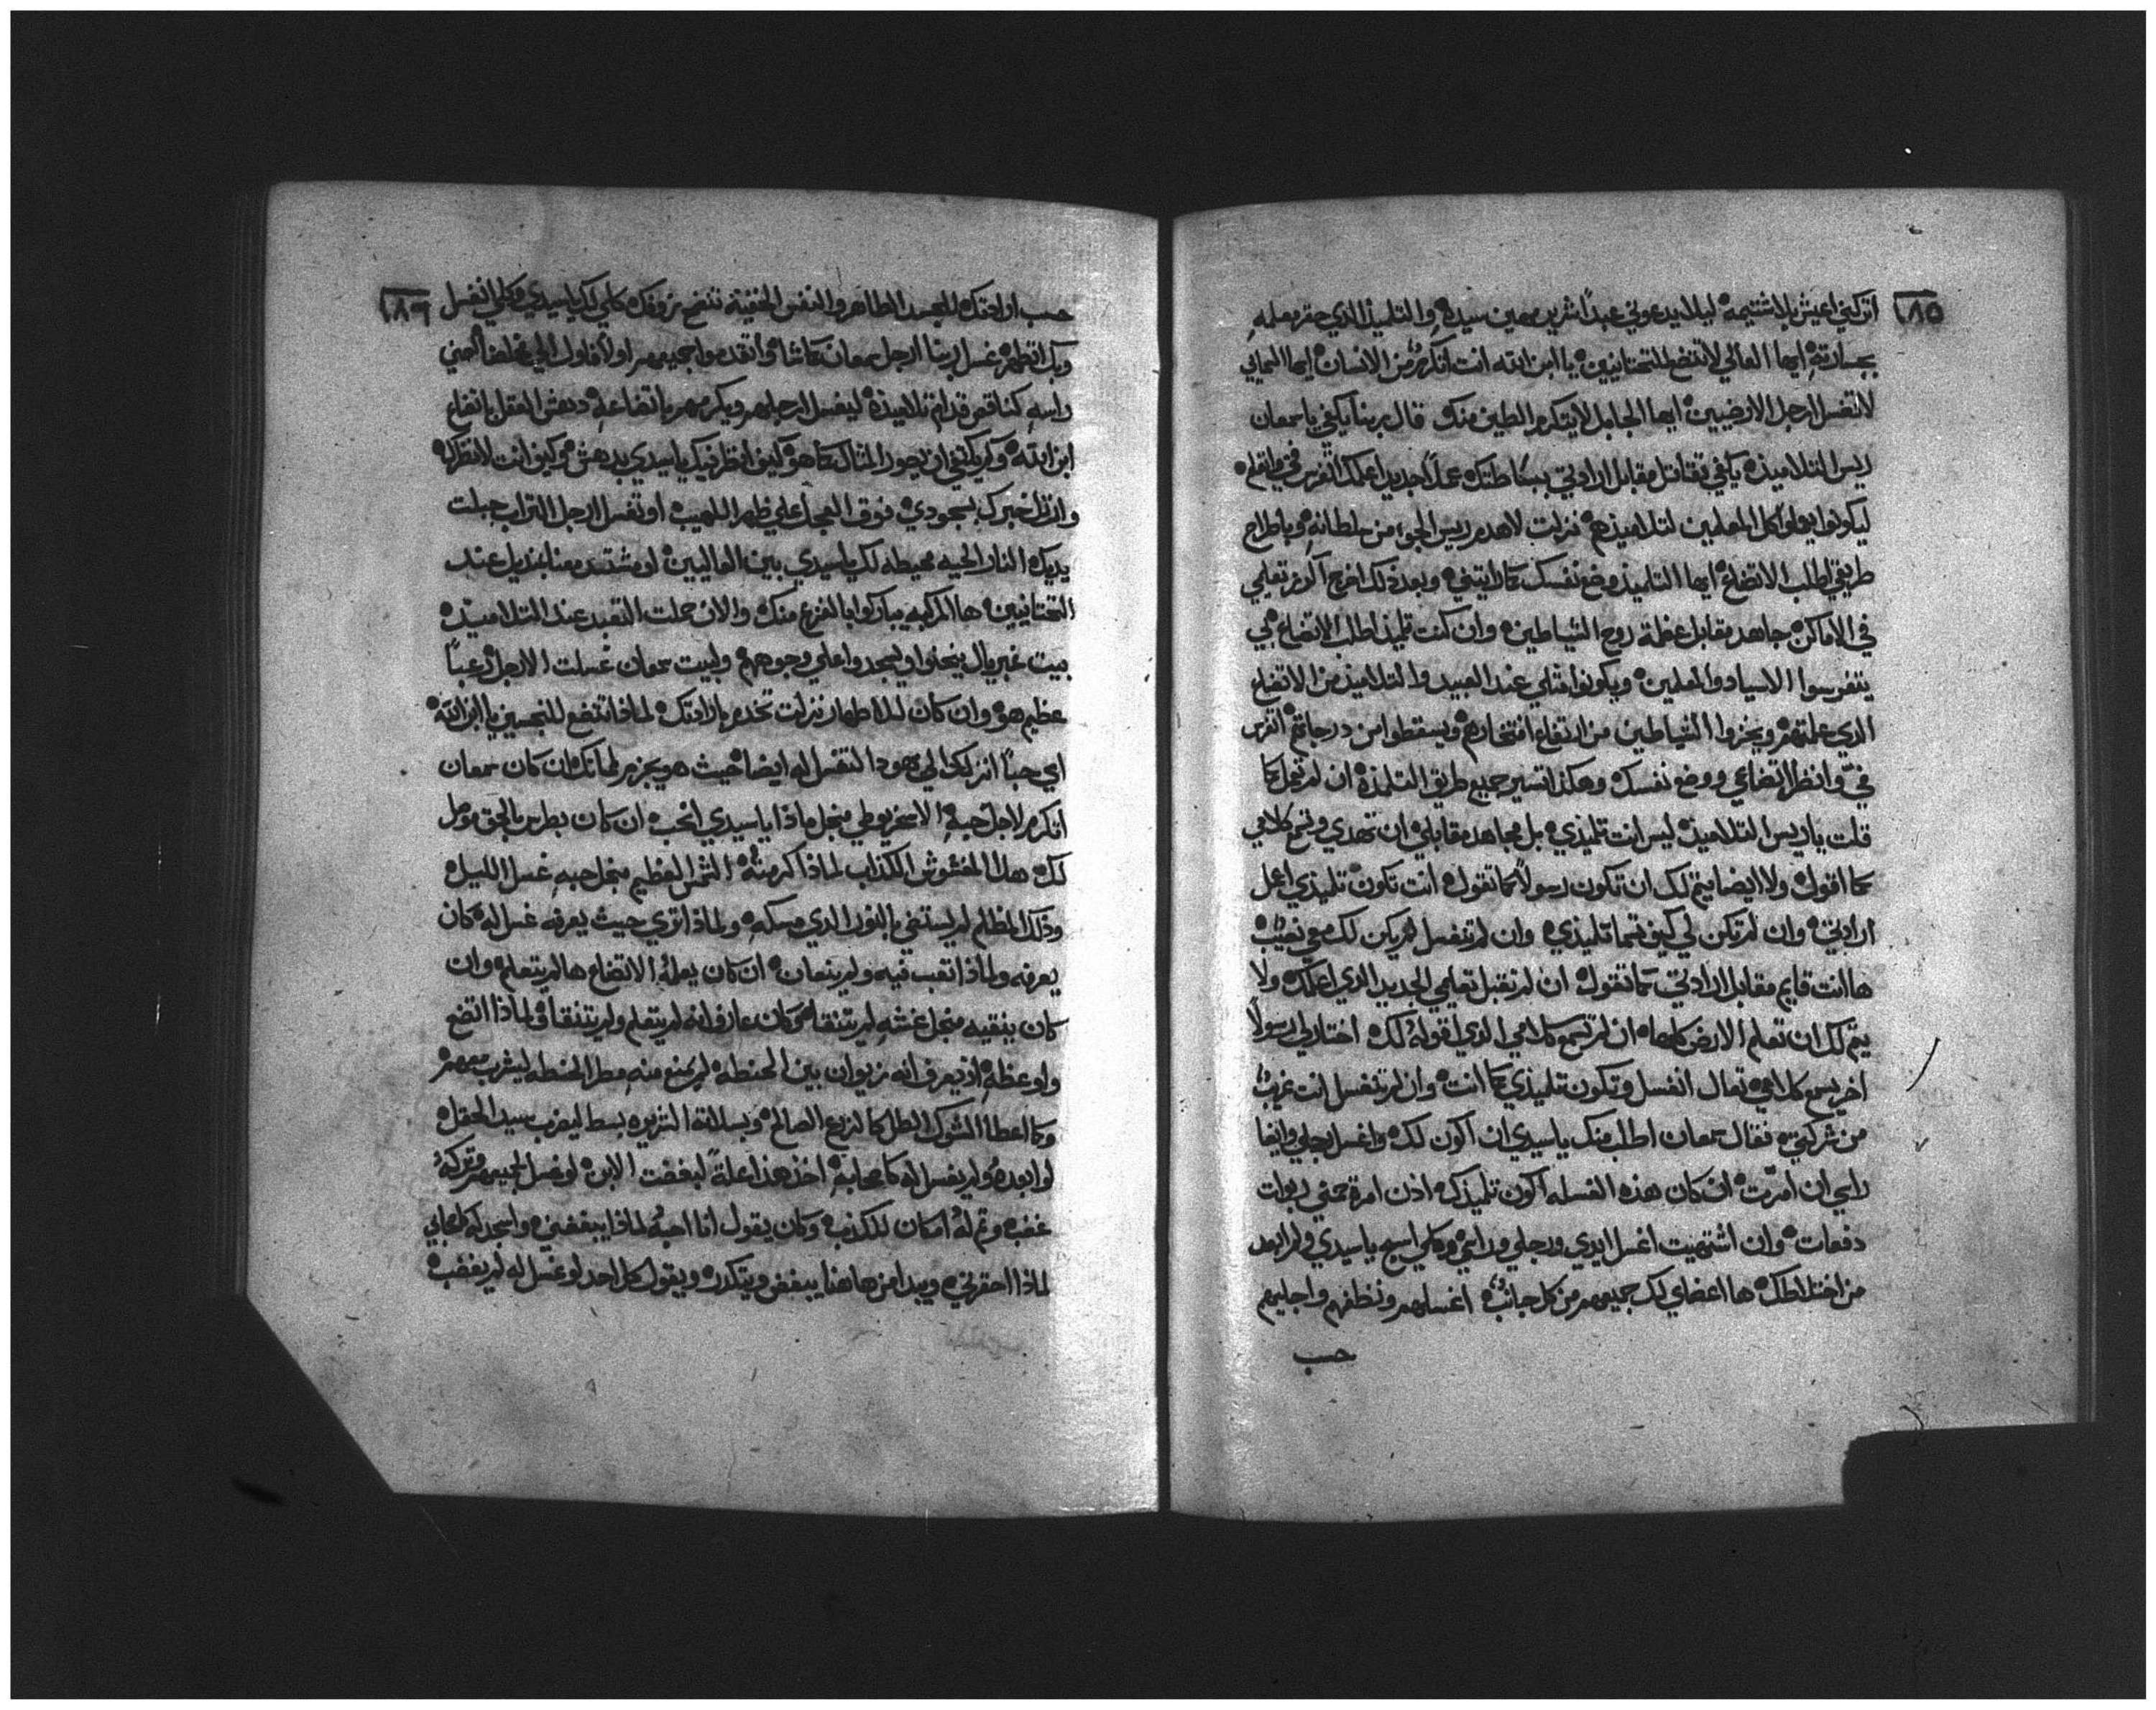 ١٨٥
اتركني اعيش بلا شتيمه ليلا يدعوني عبداً شرير مهين سيده والتلميذ الذي حقر معلمه
بجسارته ايها العالي لا تتضع للتحتانيين يا ابن الله انت اكرم من الانسان ايها السمايي
لا تغسل ارجل الارضيين ايها الجابل لا يتكرم الطين منك قال ربنا يكفي يا سمعان
ريس التلاميذ يكفي تقاتل مقابل ارادتي ببساطتك عملاً جديد اعملك اتفرس في واتعلم
ليكونوا يعملوا كل المعلمين لتلاميذهم نزلت لاهدم ريس الجو من سلطانه وباطراح
طريقي اطلب الاتضاع ايها التلميذ وضع نفسك كما رايتني وبعد ذلك اخرج اكرز تعلمي
في الاماكن جاهد مقابل عظمة روح الشياطين وان كنت تلميذ اطلب الاتضاع بي
يتفرسوا الاسياد والمعلمين ويكونوا مثلي عند العبيد والتلاميذ من الاتضاع
الذي علمتهم ويخزوا الشياطين من ارتفاع افتخارهم ويسقطوا من درجاتهم اتفرس
في وانظر اتضاعي ووضع نفسك وهكذا تسير جميع طريق التلمذه ان لم تعمل كما
قلت يا ريس التلاميذ ليس انت تلميذي بل مجاهد مقابلي ان تهدي وتسمع كلامي
كما اقول ولا ايضا يتم لك ان تكون رسولاً كما تقول انت تكون تلميذي اعمل
ارادتي وان لم تكن لي كيف تسما تلميذي وان لم تنغسل لم يكن لك معي نصيب
ها انت قايم مقابل ارادتي كما تقول ان لم تقبل تعلمي الجديد الذي اعلمك ولا
يتم لك ان تعلم الارض كلها ان لم تسمع كلامي الذي اقوله لك اختار لي رسولاً
اخر يسمع كلامي تعال انغسل وتكون تلميذي كما انت وان لم تنغسل انت غريب
من شركتي فقال سمعان اطلب منك يا سيدي ان اكون لك واغسل رجلي وايضا
راسي ان امرت ان كان هذه الغسله اكون تلميذك اذن امرة حمني ربوات
دفعات وان اشتهيت اغسل ايدي ورجلي وراسي وكلي اسبح يا سيدي ولم ابعد
من اختلاطك ها اعضاي لك جميعهم من كل جانب اغسلهم ونظفهم واجليهم
حسب
١٨٦
حسب ارادتك للجسد الطاهر والنفس النقيه تنضح بزوفك كلي لك يا سيدي وكلي انغسل
وبك اتطهر غسل ربنا ارجل سمعان كما شاه واتقدموا جميعهم اولاً فاول الي مخلصنا احني
راسه كناقص قدام تلاميذه ليغسل ارجلهم ويكرمهم باتضاعه دهش العقل باتضاع
ابن الله وكم يكفي ان يحور المثال كما هو كيف انظر فيك يا سيدي بدهش وكيف انت لانظرك
وانزل خبرك بسجودي فوق العجل علي ظهر اللهيب او تغسل ارجل التراب جبلت
يديك النار الحيه محيطه لك يا سيدي بين العاليين او مشتد معنا بمنديل عند
التحتانيين ها المركبه يباركوا بالفزع منك والان حملت التعبد عند التلاميذ
بيت غبريال ينحنوا ويسجدوا علي وجوههم ولبيت سمعان غسلت الارجل عباً
عظيم هو وان كان للاطهار نزلت تخدم بارادتك لماذا تتضع للنجسين يا ابن الله
اي حباً انزلك الي يهودا لتغسل له ايضا حيث هو يجزم لهامتك ان كان سمعان
اتكرم لاجل حبه الاسخريوطي منجل ماذا يا سيدي انحب ان كان بطرس بالحق مومل
لك هذا المغشوش الكداب لماذا كرمته الشمس العظيم منجل حبه غسل الليل
وذلك المظلم لم يستضي بالنور الذي مسكه ولماذا تري حيث يعرفه غسل له كان
يعرفه ولماذا تعب فيه ولم ينعان ان كان يعلمه الاتضاع ها لم يتعلم وان
كان ينقيه منجل غشه لم يتنقاه وكان عارف انه لم يتعلم ولم يتنقا ولماذا اتضع
واوعظه اذ يعرف انه زيوان بين الحنطه لم يمنع منه مطر الحنطه ليشرب معهم
وكما اعطا الشوك الطل كما لزرع الصالح وبسلاقة التنزير بسط ليضرب سيد الحقل
لو ابعده ولم يغسل له كاصحابه اخذ هذا علةً لبغضت الابن لو غسل لجميعهم وتركه
غضبه وتم له امكان للكذب وكان يقول انا احبه لماذا يبغضني واسجد له كاصحابي
لماذا احقرني ويبدا من هاهنا يبغض ويتكدر ويقول كل احد لو غسل له لم يغضب